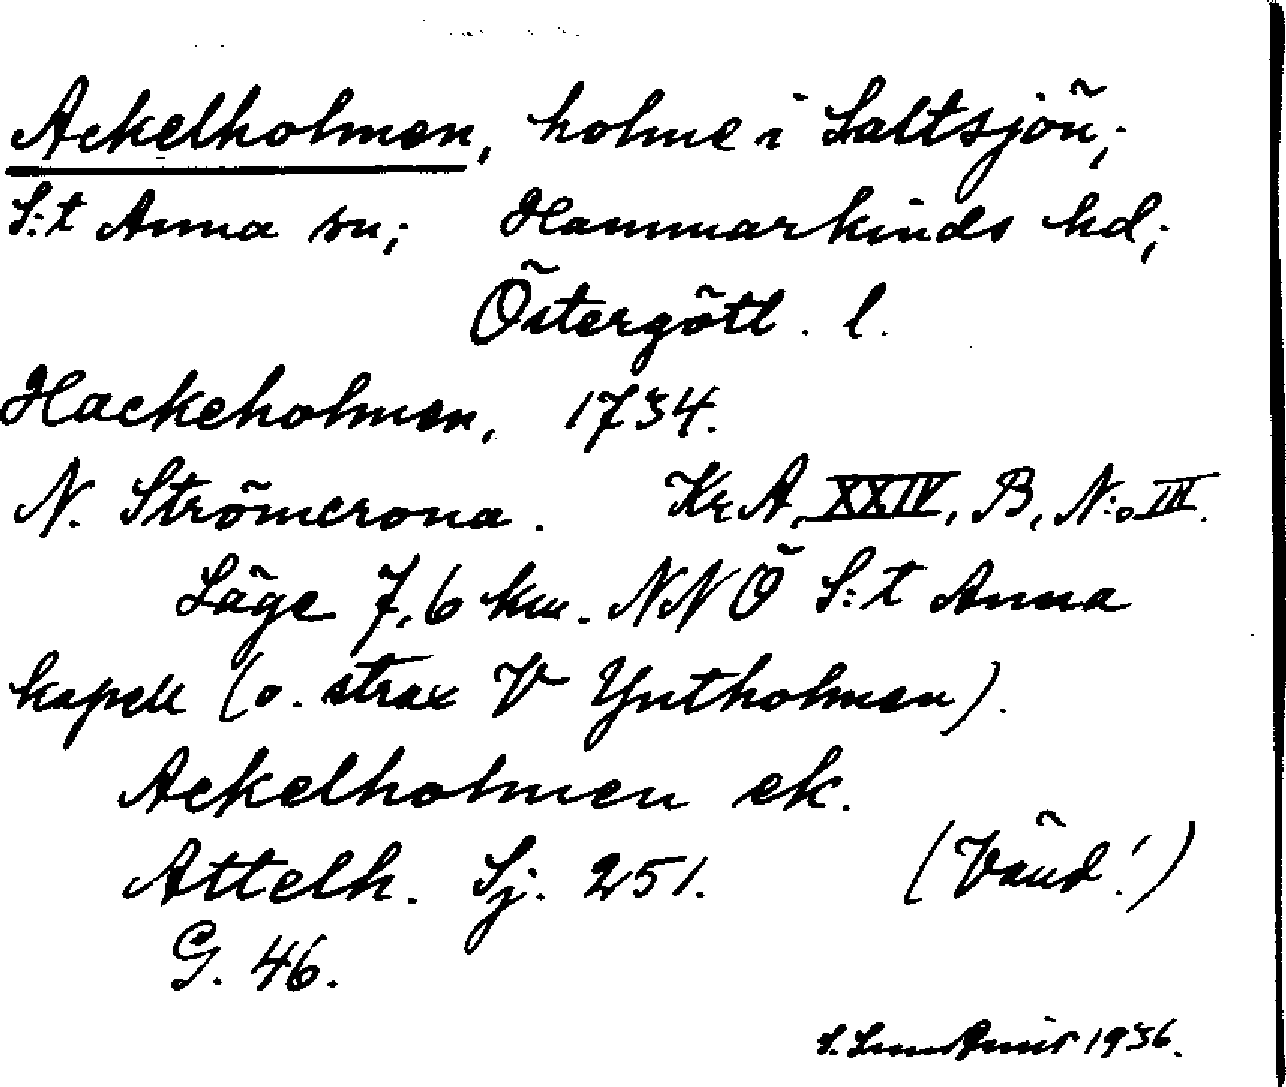 Ackelholmen, holme i Saltsjön;
S:t Anna sn; Hammarkinds hd;
Östergötl. l.
Hackeholmen, 1734.
N. Strömcrona. Kr A, XXIV, B, N:o III.
Läge 7,6 km. NNÖ S:t Anna
kapell (o. strax V Yxtholmen).
Ackelholmen ek.
Attelh. Sj. 251. (Vänd!)
G. 46.
1936.